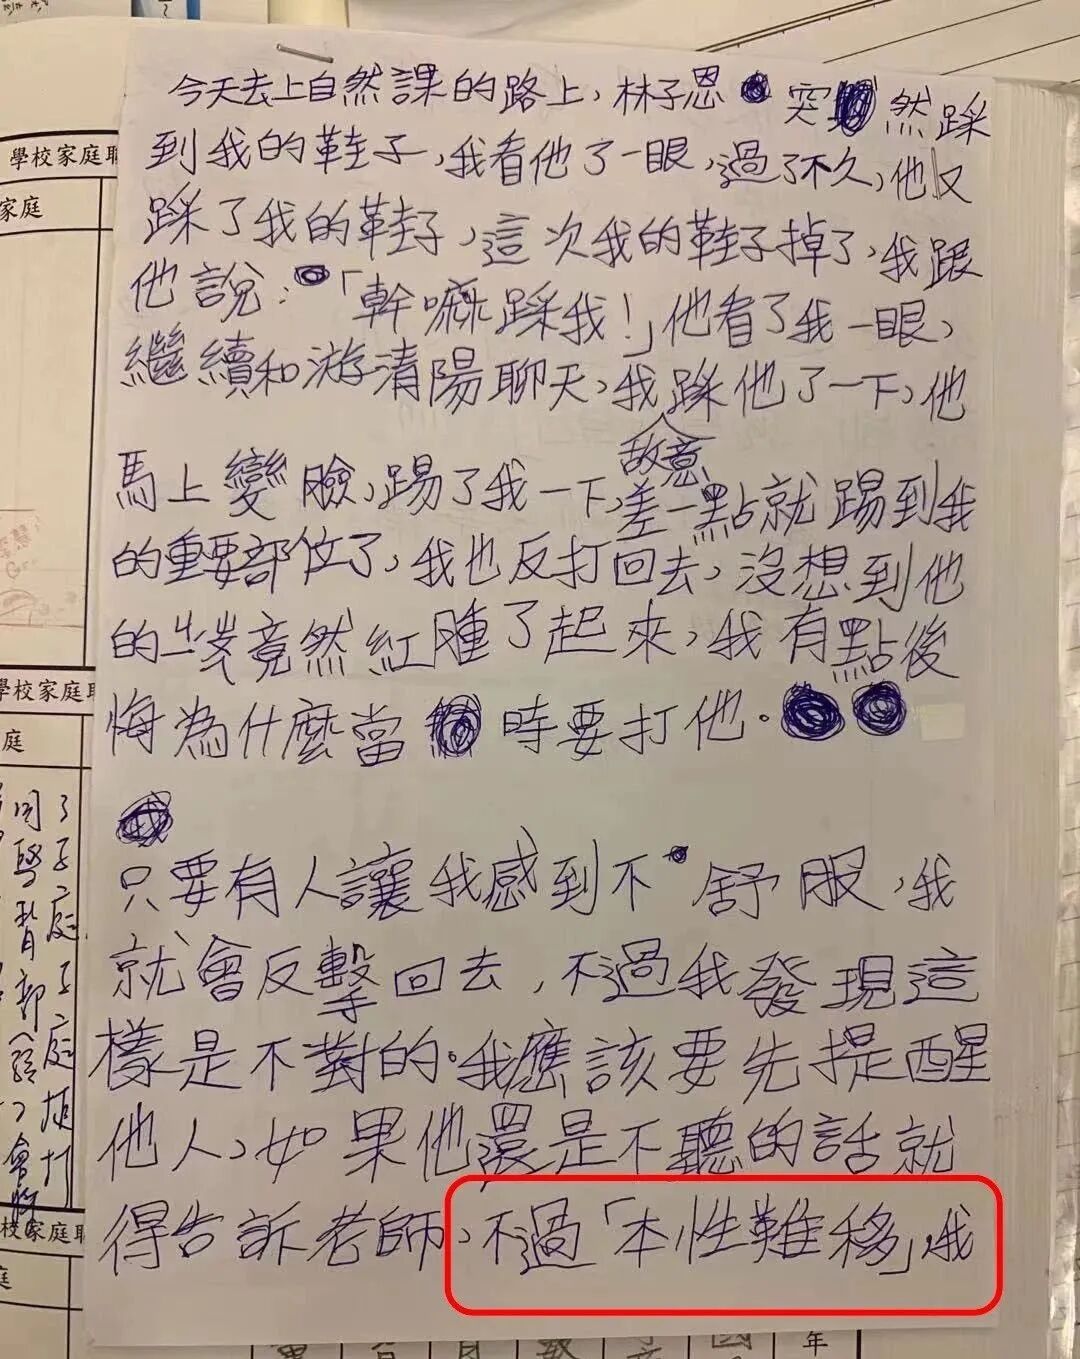 今天去上自然課的路上，林子恩突然踩
到我的鞋子，我看他了一眼，過了不久，他又
踩了我的鞋子，這次我的鞋子掉了，我跟
他說：「幹嘛踩我！」他看了我一眼，
繼續和游清陽聊天，我踩他了一下，他
敵意
馬上變臉，踢了我一下，差一點就踢到我
的重要部位了，我也反打回去，沒想到他
的竟然紅腫了起來，我有點後
悔為什麼當時要打他。
只要有人讓我感到不舒服，我
就會反擊回去，不過我發現這
樣是不對的。我應該要先提醒
他人，如果他還是不聽的話就
得告訴老師，不過「本性難移」，我
學校家庭
家庭
學校家庭
庭
校家庭
庭
年